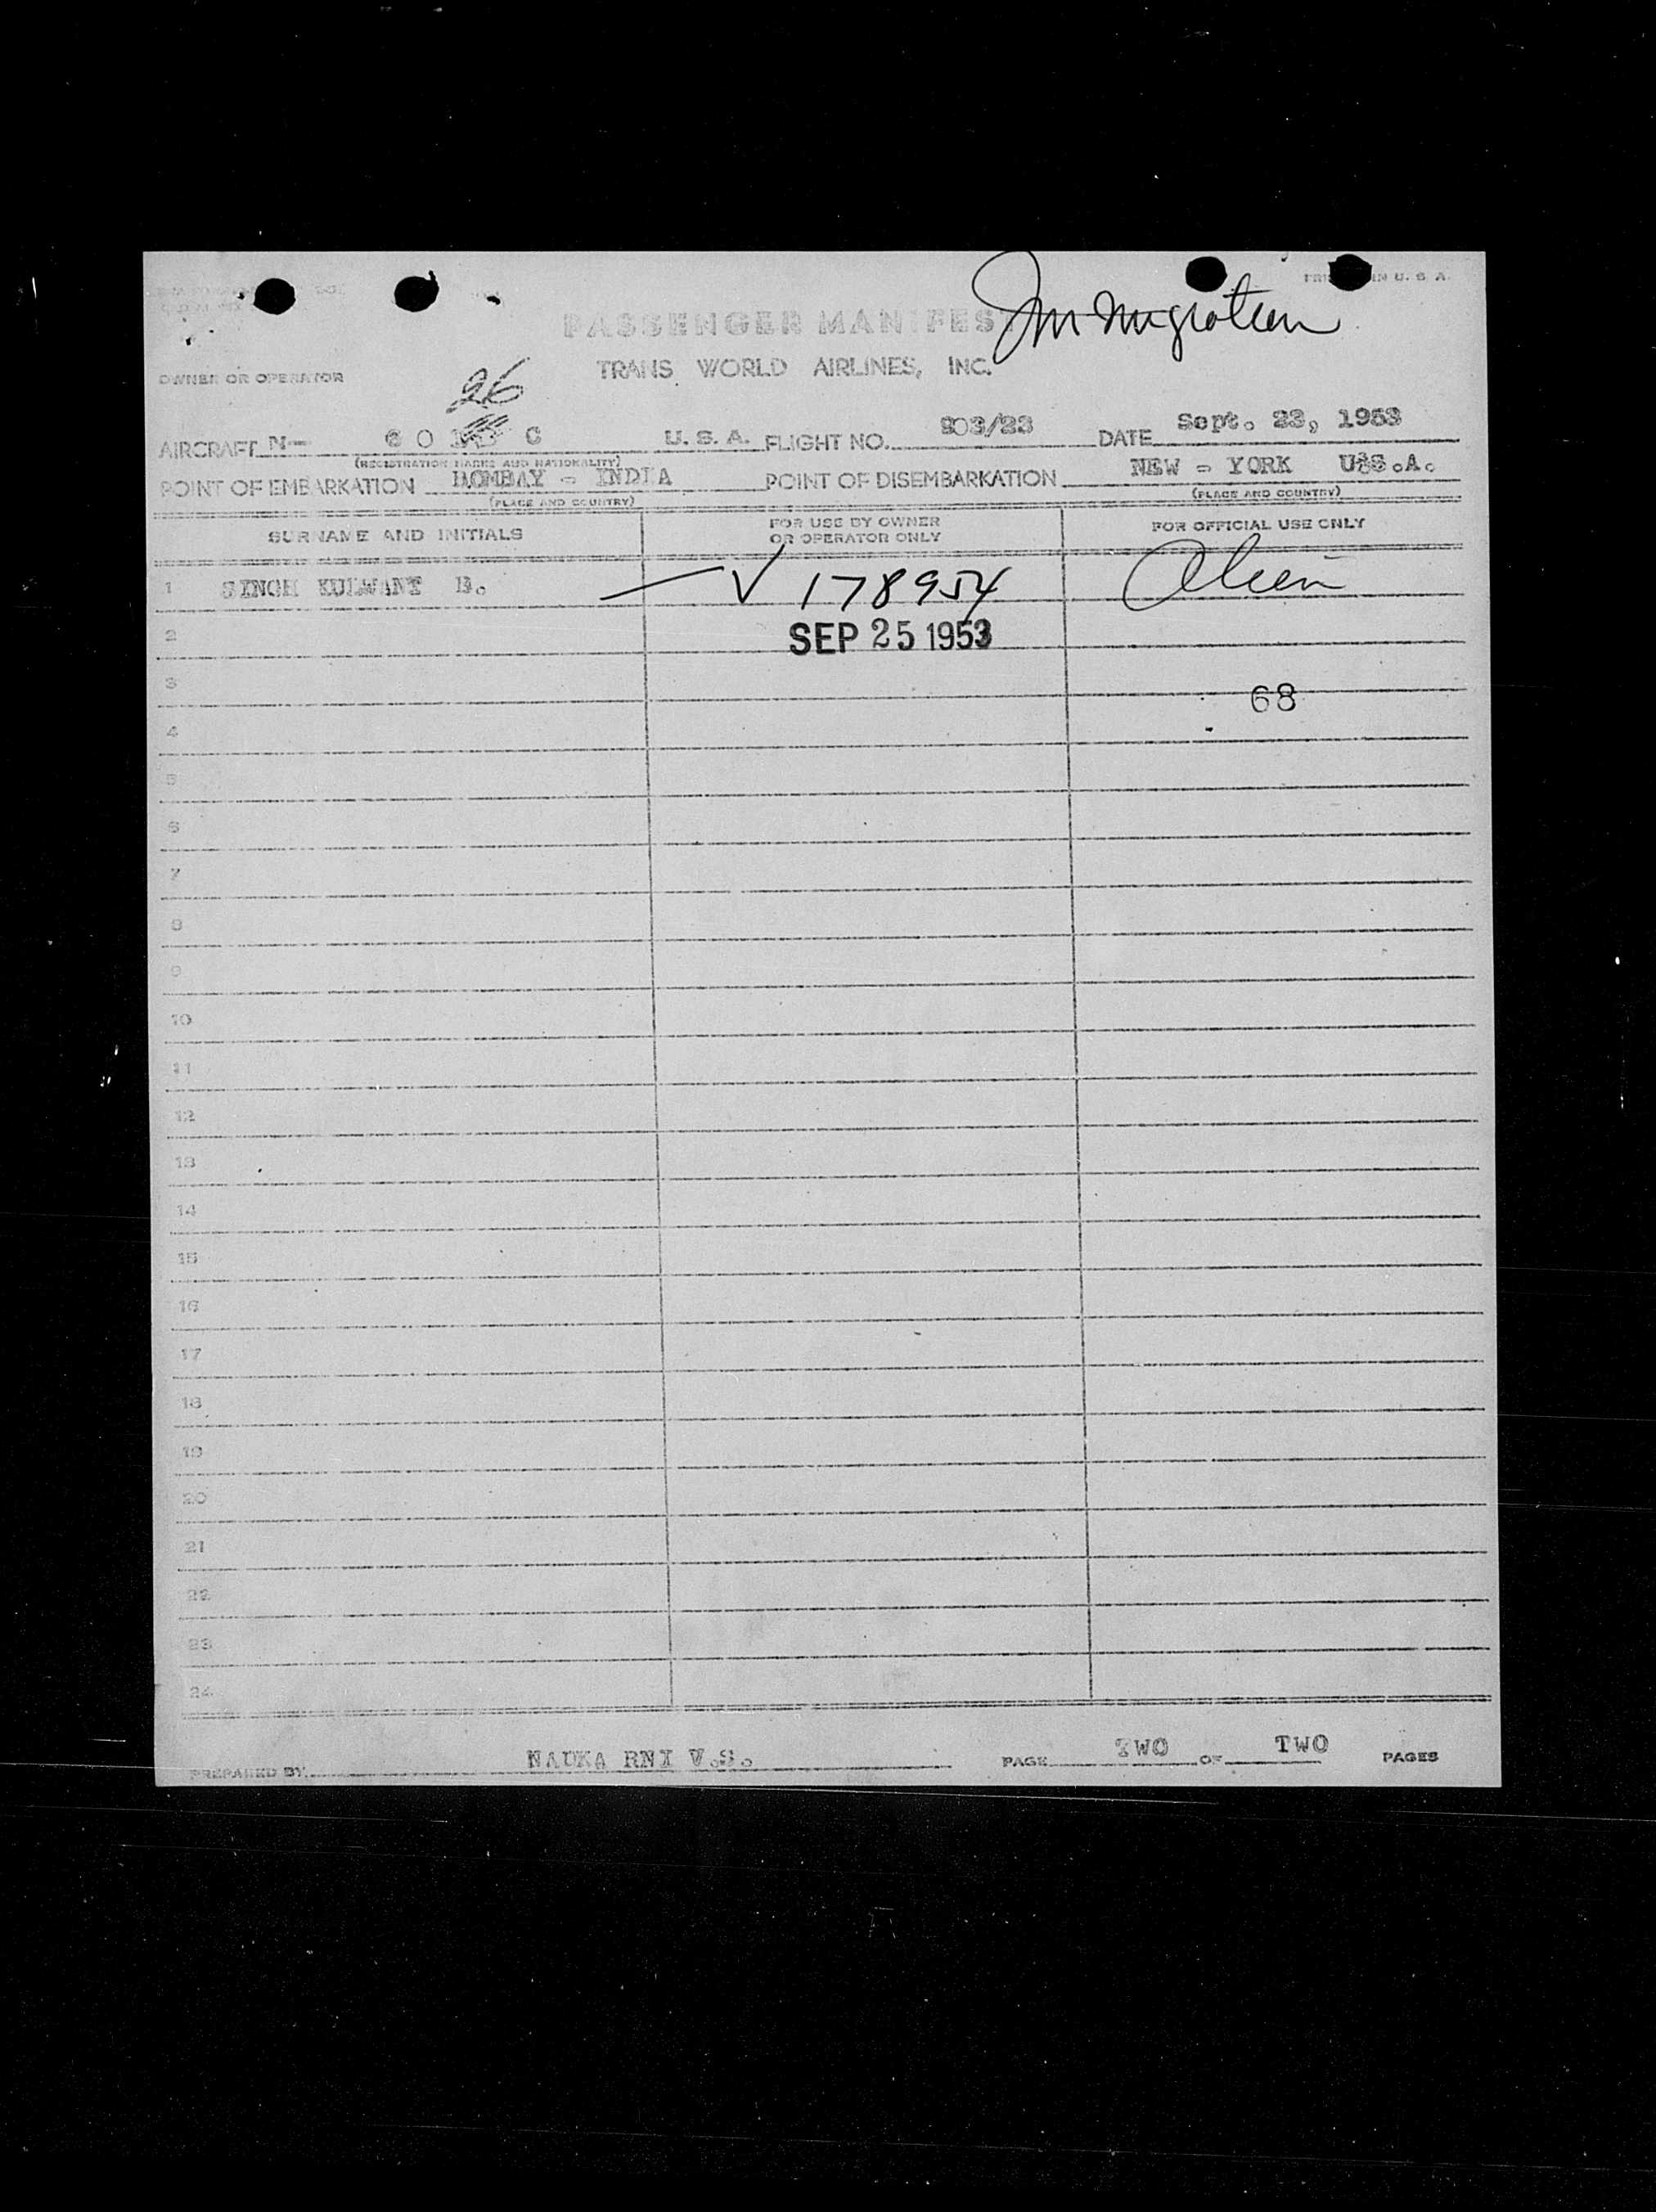 PRINTED IN U. S. A.
PASSENGER MANIFEST
Immigration
OWNER OR OPERATOR
TRANS WORLD AIRLINES, INC.
26
AIRCRAFT N- 60 C U. S. A. FLIGHT NO. 903/23 DATE Sept. 23, 1953
(REGISTRATION MARKS AND NATIONALITY)
POINT OF EMBARKATION BOMBAY - INDIA POINT OF DISEMBARKATION NEW - YORK U.S.A.
(PLACE AND COUNTRY) (PLACE AND COUNTRY)
SURNAME AND INITIALS FOR USE BY OWNER OR OPERATOR ONLY FOR OFFICIAL USE ONLY
1 SINGH KULWANT B. — ✓ 178954 Alien
2 SEP 25 1953
3 68
4
5
6
7
8
9
10
11
12
13
14
15
16
17
18
19
20
21
22
23
24
PREPARED BY NAUKA RNI V.S. PAGE TWO OF TWO PAGES